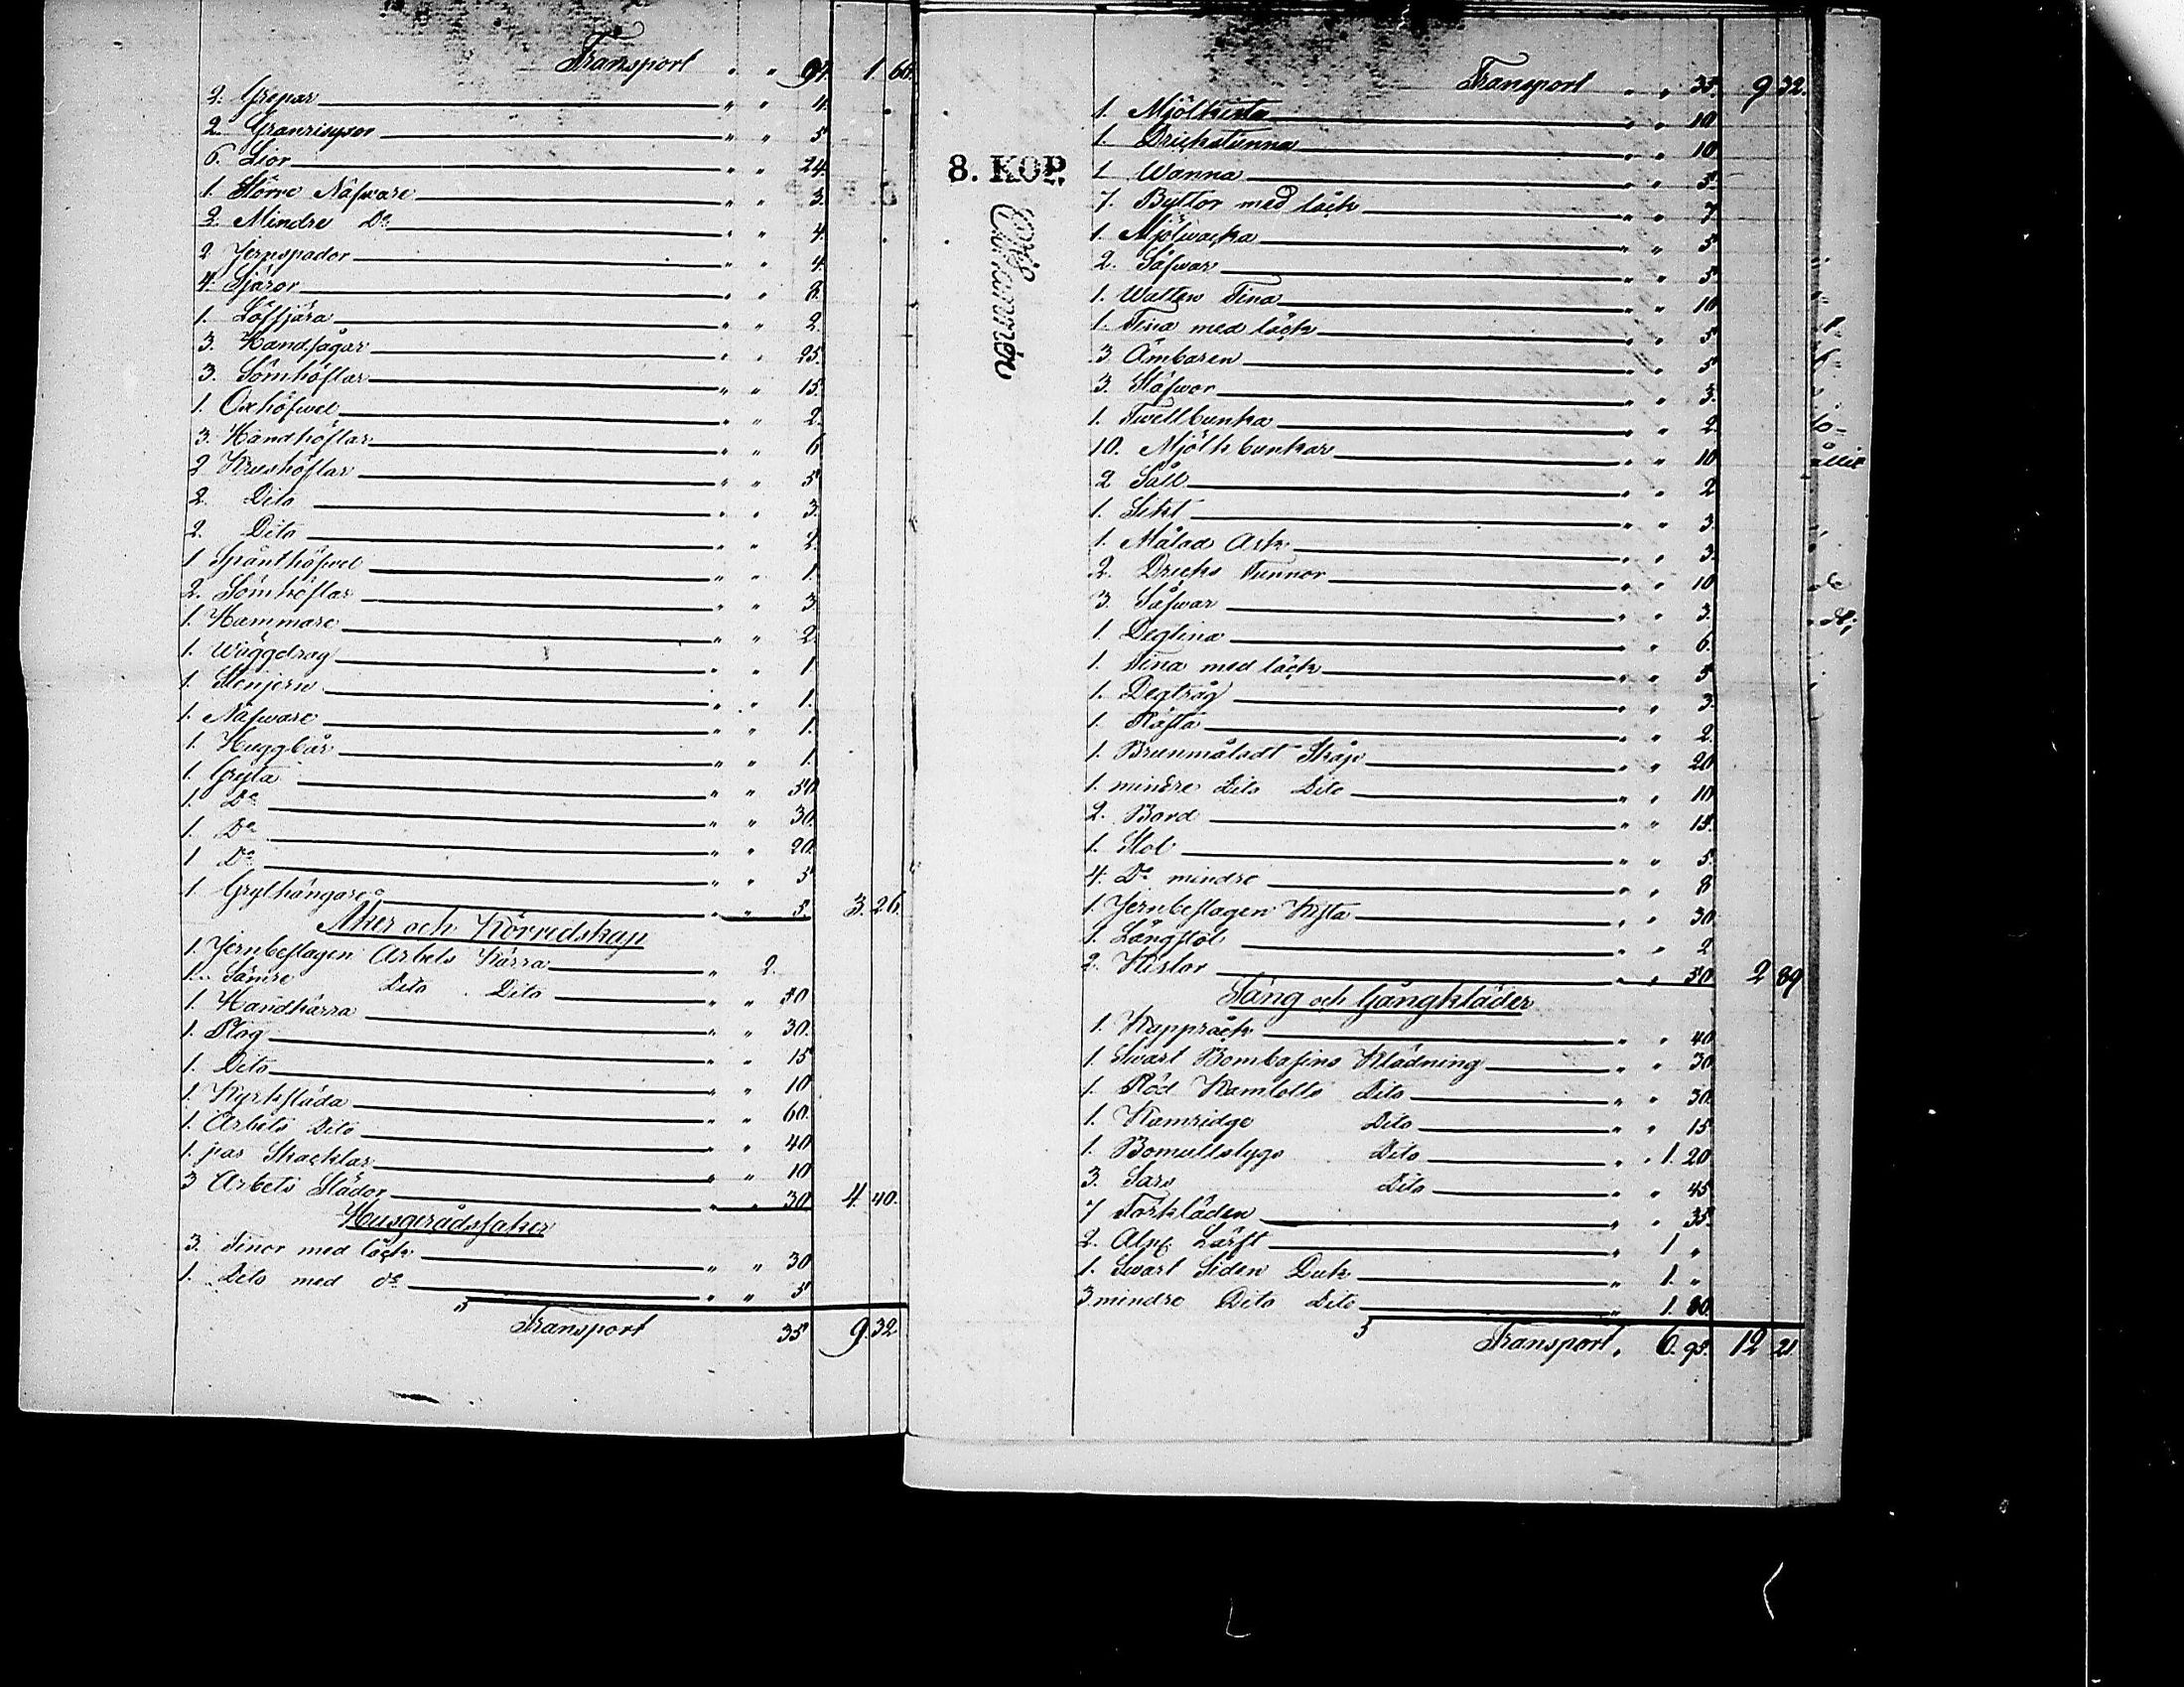 Transport " " 97. 1 66.
2. Grepar " " 4.
2. Granrisyxor " " 5
6. Lior " " 24.
1. Större Näfware " " 3.
2. Mindre Do " " 4.
2 Jernspador " " 4.
4. Tjäror " " 8.
1. Löftjära " " 2.
3. Handsågar " " 25.
3. Sömhöflar " " 15.
1. Oxhöfwel " " 2.
3. Handhöflar " " 6
2 Krushöflar " " 5
2. Dito " " 3.
2. Dito " " 2.
1 Spånthöfvel " " 1.
2. Sömhöflar " " 3
1. Hammare " " 2.
1. Wäggdrag " " 1
1. Stenjern " " 1.
1. Näfware " " 1.
1. Huggbår " " 1.
1. Gryta " " 50
1. Do " " 30.
1. Do " " 20.
1 Do " " 5
1. Grythängare " " 5. 3. 26.
Åker och Körredskap
1. Jernbeslagen Arbets Kärra " 2.
1. Sämre Dito Dito " " 50
1. Handkärra " " 30.
1. Plog " " 15
1. Dito " " 10
1. Kyrksläda " " 60.
1. Arbets Dito " " 40
1. par Skacklar " " 10
3 Arbets Slädor " " 30 4. 40.
Husgerådssaker
3. Tinor med läck " " 30
1. Dito med do " " 5
Transport 35 9. 32
8. KOP.
Transport " " 35. 9 32.
1. Mjölkista " " 10
1. Drickstunna " " 10
1 Wanna " " 5.
7. Byttor med läck " " 7
1. Mjölwacka " " 5
2. Såfwar " " 5
1. Watten Tina " " 10
1. Tina med läck " " 5
3 Ämbaren " " 5
3. Stäfwor " " 3.
1. Twellbunka " " 2
10. Mjölkbunkar " " 10
2 Såll " " 2
1. Sikt " " 3.
1. Målad Ask " " 3.
2. Dricks Tunnor " " 10
3. Såfwar " " 3.
1. Degtina " " 6.
1. Tina med läck " " 5
1. Degtråg " " 3.
1. " " 2.
1. Brunmåladt Skåp " " 20
1. mindre Dito Dito " " 10
2. Bord " " 15.
1. Stol " " 5.
4. Do mindre " " 8
1. Jernbeslagen Kista " " 30
1. Långstol " " 2
2. Kistor " " 50 2 89
Säng och Gångkläder
1. Kappräck " " 40
1. Swart Bombasins Klädning " " 30
1. Röd Kamlotts Dito " " 30.
1. Kamridge Dito " " 15
1. Bomullstygs Dito " " 1. 20
3. Sars Dito " " 45
7 Förkläden " " 35.
2. Aln. Lärft " 1 "
1. Swart Siden Duk " 1. "
3 mindre Dito Dito " 1. 80.
Transport " 6. 95. 12 21.